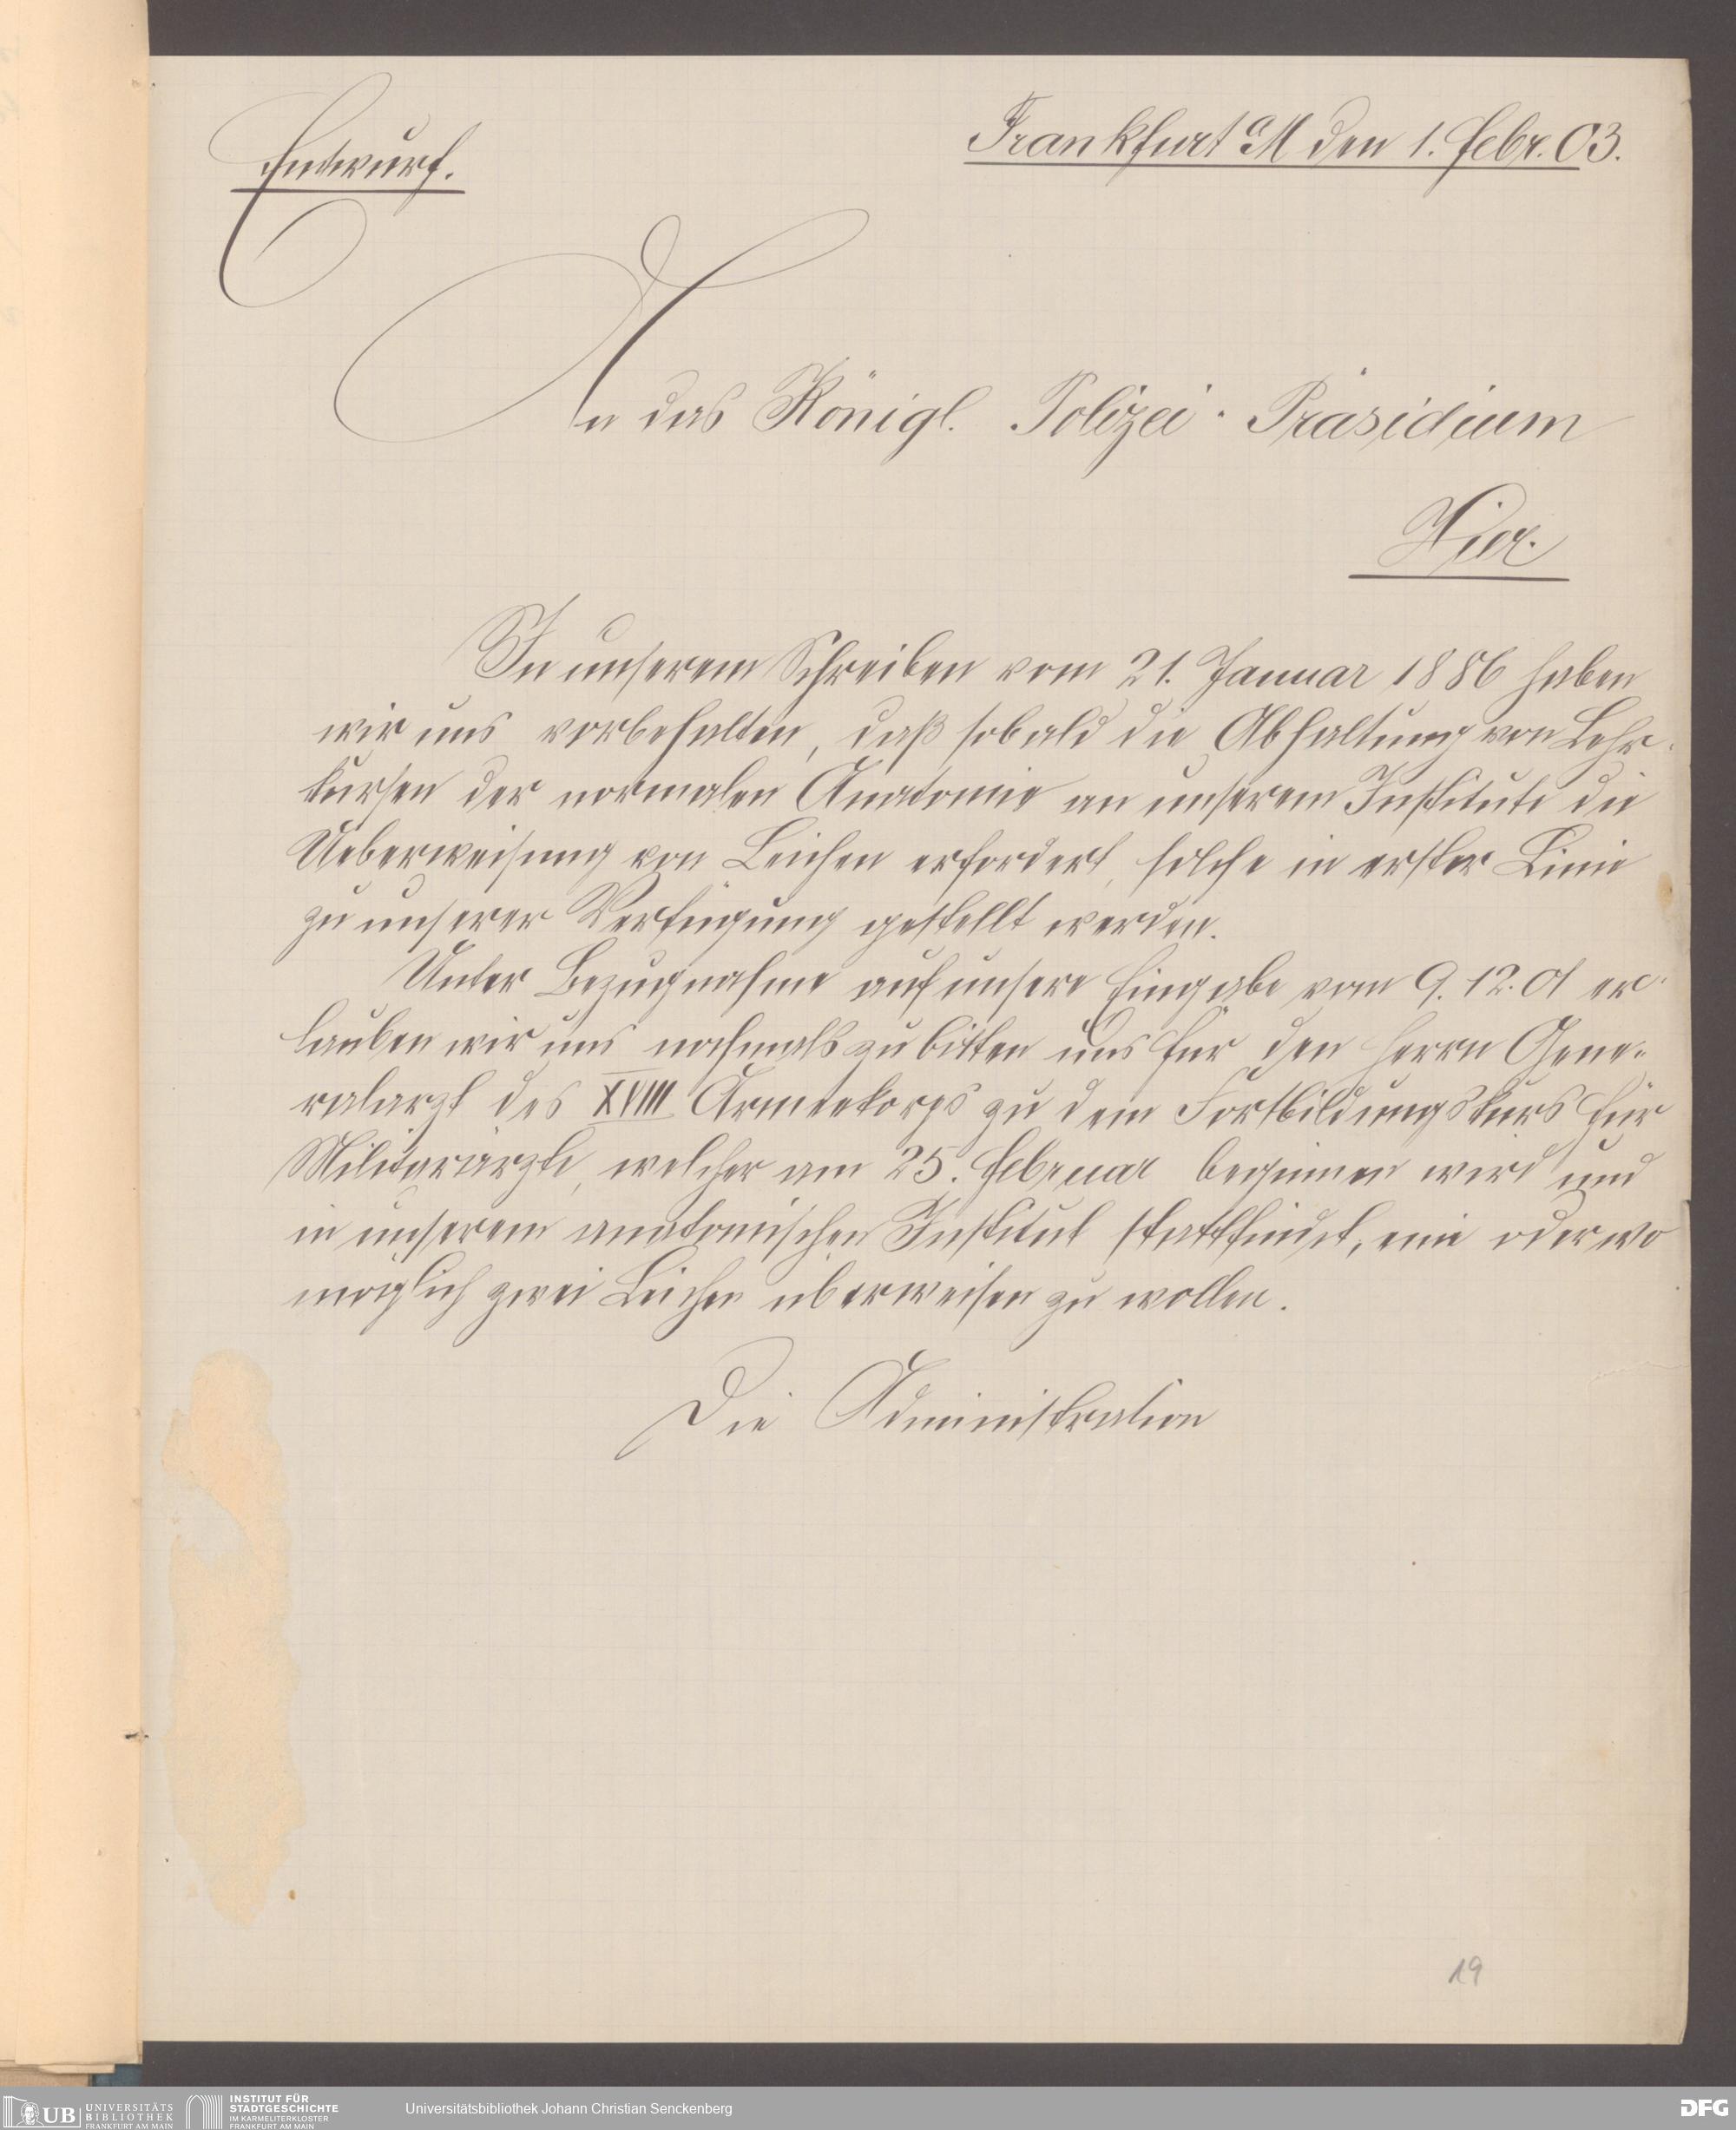 Entwurf.
Frankfurt a/M den 1. Febr. 03.
An das Königl. Polizei-Präsidium
Hier.
In unserem Schreiben vom 21. Januar 1886 haben
wir uns vorbehalten, daß sobald die Abhaltung von Lehr-
kursen der normalen Anatomie an unserem Institute die
Ueberweisung von Leichen erfordert, solche in erster Linie
zu unserer Verfügung gestellt werden.
Unter Bezugnahme auf unsere Eingabe vom 9.12.01 er-
lauben wir uns nochmals zu bitten uns für den Herrn Gene-
ralarzt des XVIII Armeekorps zu dem Fortbildungskurs für
Militärärzte, welcher am 25. Februar beginnen wird und
in unserem anatomischen Institut stattfindet, eine oder wo
möglich zwei Leichen überweisen zu wollen.
Die Administration
19
UB UNIVERSITÄTS
BIBLIOTHEK
FRANKFURT AM MAIN
INSTITUT FÜR
STADTGESCHICHTE
IM KARMELITERKLOSTER
FRANKFURT AM MAIN
Universitätsbibliothek Johann Christian Senckenberg
DFG